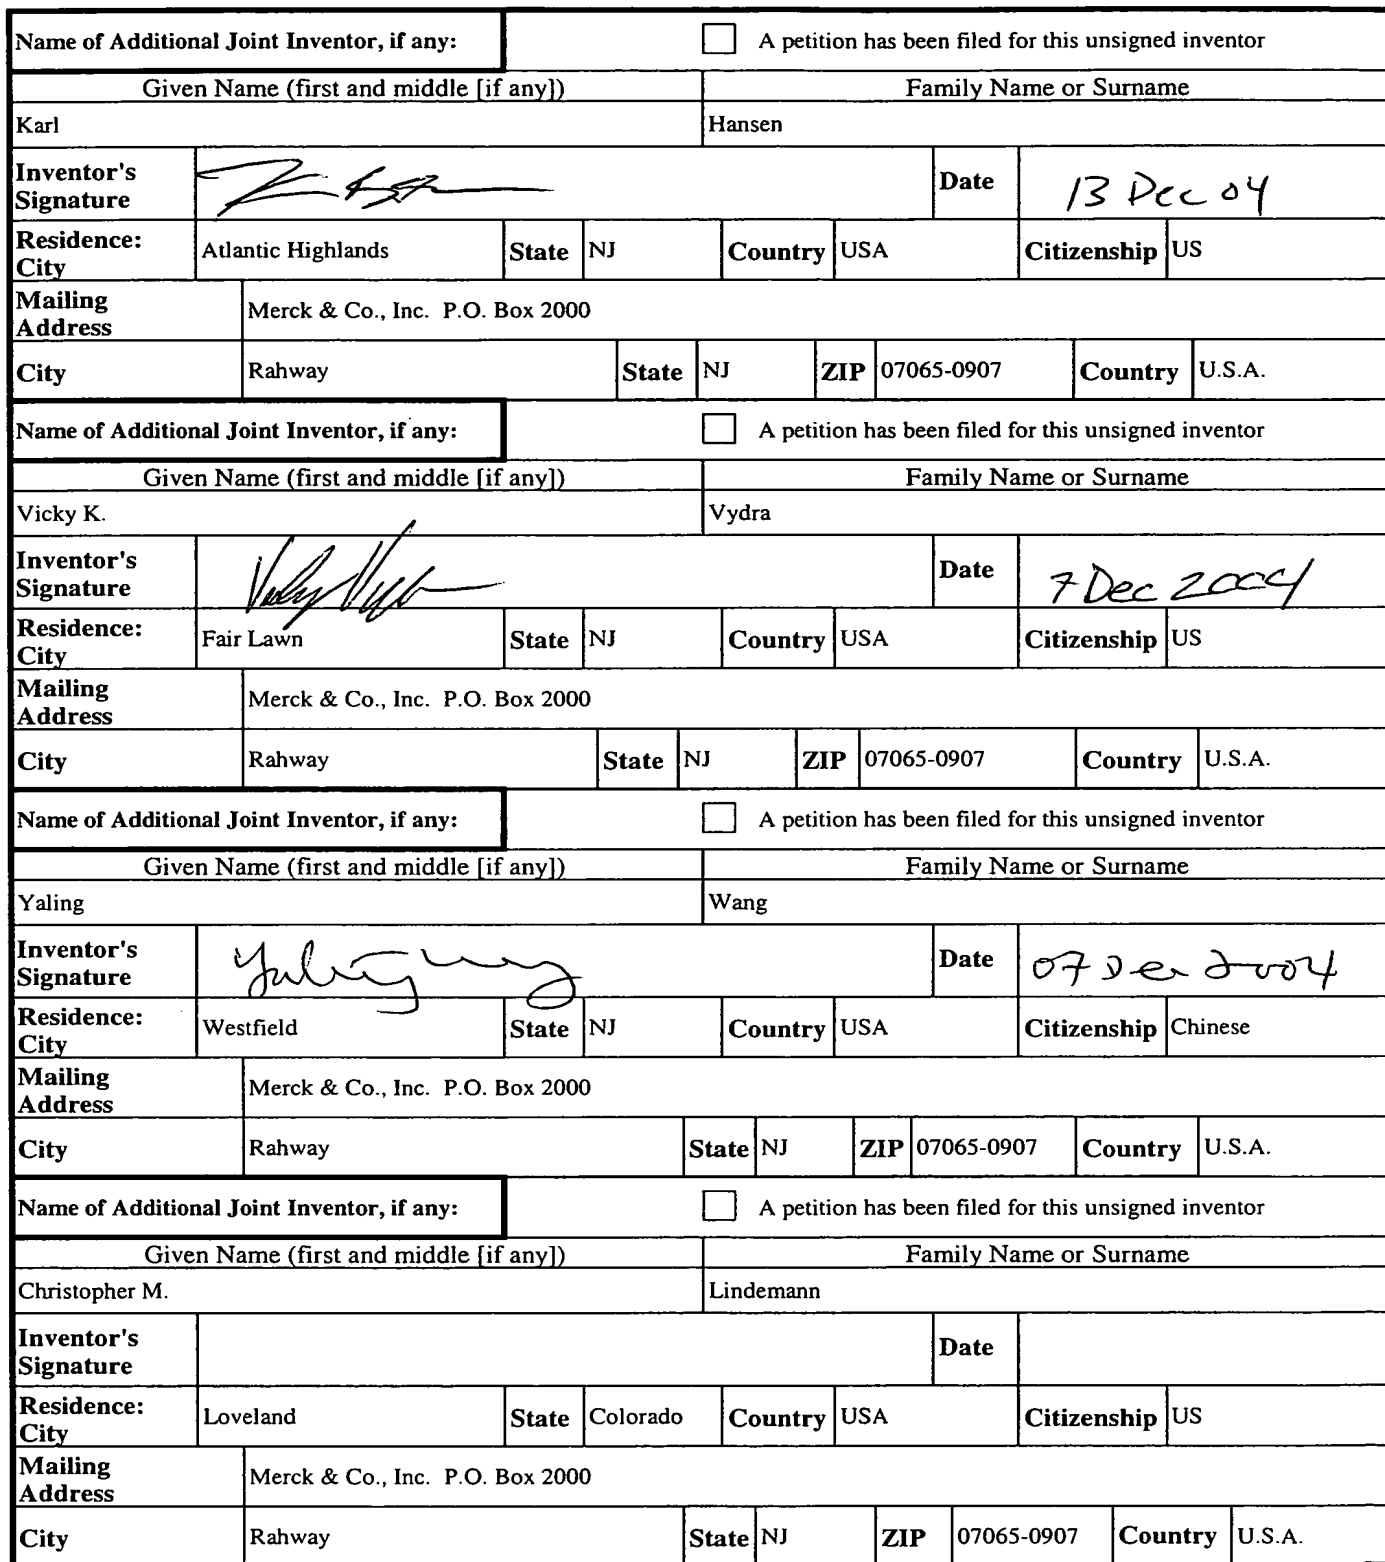 Name of Additional Joint Inventor, if any: A petition has been filed for this unsigned inventor
Given Name (first and middle [if any]) Family Name or Surname
Karl Hansen
Inventor's Signature Date 13 Dec 04
Residence: City Atlantic Highlands State NJ Country USA Citizenship US
Mailing Address Merck & Co., Inc. P.O. Box 2000
City Rahway State NJ ZIP 07065-0907 Country U.S.A.
Name of Additional Joint Inventor, if any: A petition has been filed for this unsigned inventor
Given Name (first and middle [if any]) Family Name or Surname
Vicky K. Vydra
Inventor's Signature Vicky Vydra Date 7 Dec 2004
Residence: City Fair Lawn State NJ Country USA Citizenship US
Mailing Address Merck & Co., Inc. P.O. Box 2000
City Rahway State NJ ZIP 07065-0907 Country U.S.A.
Name of Additional Joint Inventor, if any: A petition has been filed for this unsigned inventor
Given Name (first and middle [if any]) Family Name or Surname
Yaling Wang
Inventor's Signature Yaling Wang Date 07 Dec 2004
Residence: City Westfield State NJ Country USA Citizenship Chinese
Mailing Address Merck & Co., Inc. P.O. Box 2000
City Rahway State NJ ZIP 07065-0907 Country U.S.A.
Name of Additional Joint Inventor, if any: A petition has been filed for this unsigned inventor
Given Name (first and middle [if any]) Family Name or Surname
Christopher M. Lindemann
Inventor's Signature Date
Residence: City Loveland State Colorado Country USA Citizenship US
Mailing Address Merck & Co., Inc. P.O. Box 2000
City Rahway State NJ ZIP 07065-0907 Country U.S.A.